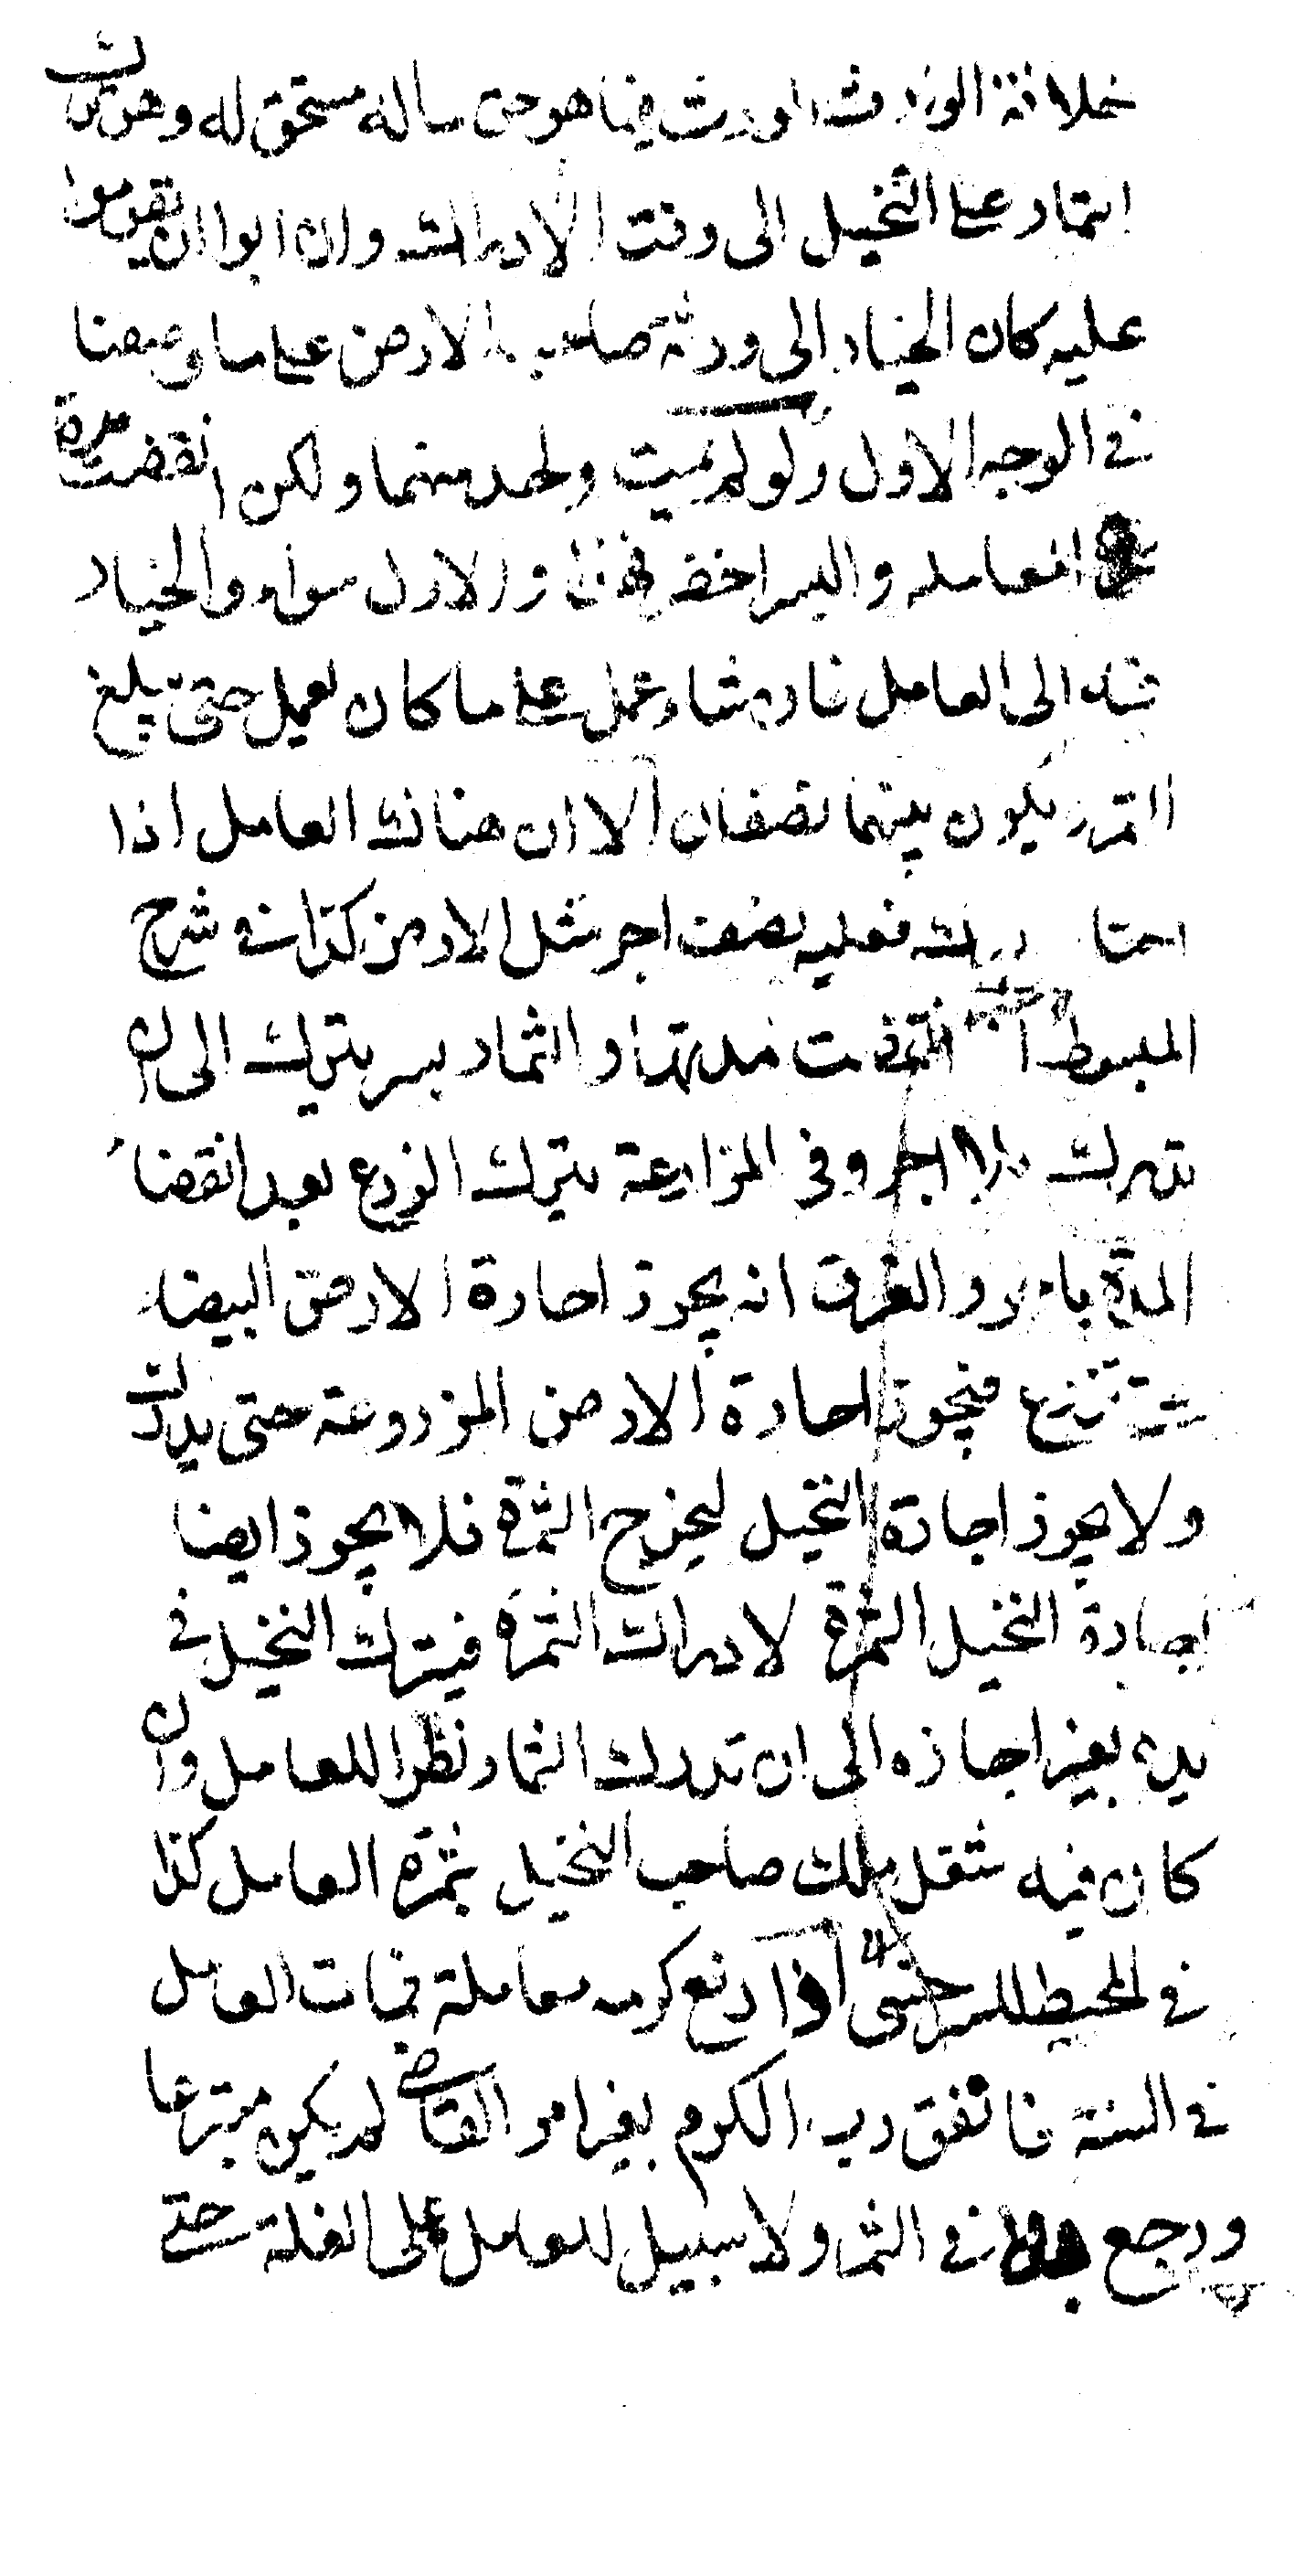 خلافة الوارث المورث فيما هو حق ماله مستحق له وهو ترك
الثمار على النخيل الى وقت الادراك وان ابوا ان يقوموا
عليه كان الخيار الى ورثة صاحب الارض على ما وصفنا
في الوجه الاول ولو لم يميت واحد منهما ولكن انقضت مدة
المعاملة والبسر اخضر فهذا والاول سواء والخيار
فيه الى العامل فان شاء عمل على ما كان يعمل حتى يبلغ
الثمر ويكون بينهما نصفان الا ان هناك العامل اذا
اختار الترك فعليه نصف اجر مثل الارض كذا في شرح
المبسوط انقضت مدتها والثمار بسر يترك الى ان
تدرك بلا اجر وفي المزارعة يترك الزرع بعد انقضاء
المدة باجر والفرق انه يجوز اجارة الارض البيضاء
فيجوز اجارة الارض المزروعة حتى يدرك
ولا يجوز اجارة النخيل ليخرج الثمرة فلا يجوز ايضا
اجارة النخيل الثمرة لادراك الثمرة فيترك النخيل في
يده بغير اجازه الى ان تدرك الثمار نظرا للعامل وان
كان فيه شغل ملك صاحب النخيل بثمرة العامل كذا
في المحيط للسرخسى اذا دفع كرمه معاملة فمات العامل
في السنة فانفق رب الكرم بغير امر القاضي لم يكن متبرعا
ورجع في الثمر ولا سبيل للعامل على الغلة حتى